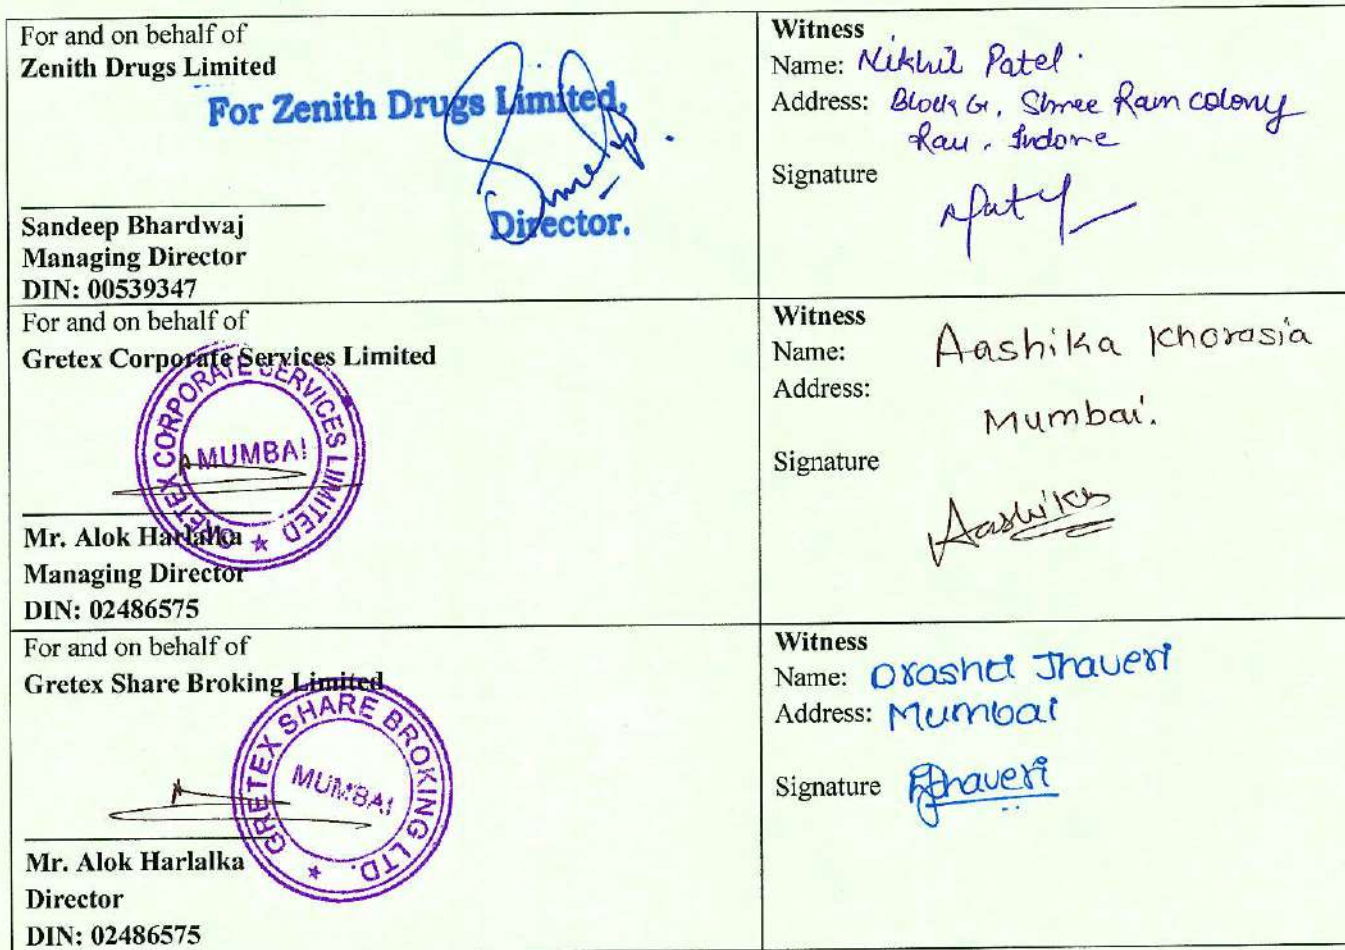 For and on behalf of
Zenith Drugs Limited
For Zenith Drugs Limited,
Director.
Sandeep Bhardwaj
Managing Director
DIN: 00539347
Witness
Name: Nikhil Patel.
Address: Block G, Shree Ram colony
Rau, Indore
Signature
For and on behalf of
Gretex Corporate Services Limited
GRETEX CORPORATE SERVICES LIMITED
MUMBAI
Mr. Alok Harlalka
Managing Director
DIN: 02486575
Witness
Name: Aashika Khorasia
Address:
Mumbai.
Signature
Aashika
For and on behalf of
Gretex Share Broking Limited
GRETEX SHARE BROKING LTD.
MUMBAI
Mr. Alok Harlalka
Director
DIN: 02486575
Witness
Name: Drashti Jhaveri
Address: Mumbai
Signature Jhaveri